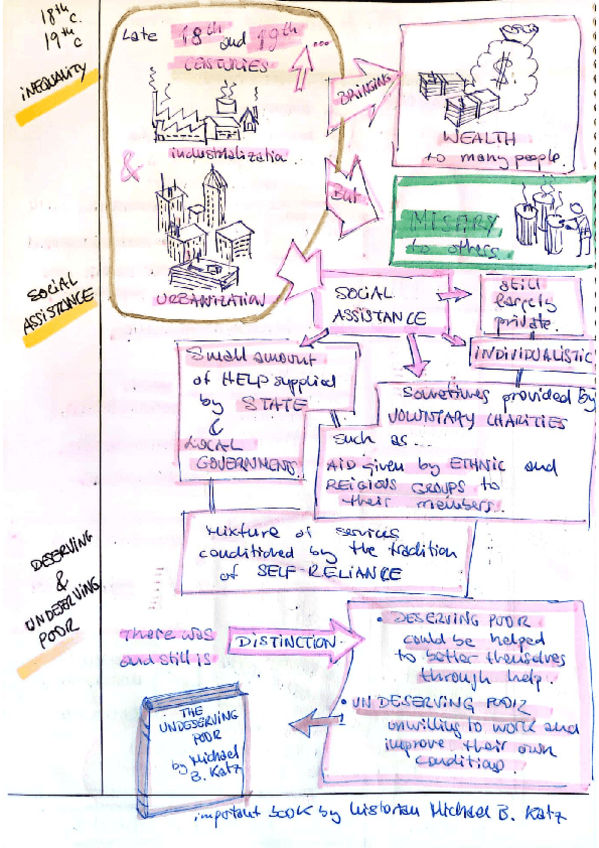 18th c.
19th c
INEQUALITY
Late 18th and 19th
CENTURIES
...
industrialization
&
URBANIZATION
BRINGING
WEALTH
to many people.
But
MISARY
to others
SOCIAL
ASSISTANCE
SOCIAL
ASSISTANCE
still
largely
private.
INDIVIDUALISTIC
Small amount
of HELP supplied
by STATE
&
LOCAL
GOVERNMENT
Sometimes provided by
VOLUNTARY CHARITIES
such as...
AID given by ETHNIC and
RELIGIOUS GROUPS to
their members.
Mixture of services
conditioned by the tradition
of SELF-RELIANCE
DESERVING
&
UNDESERVING
POOR
There was
and still is
DISTINCTION
• DESERVING POOR
could be helped
to better themselves
through help.
• UNDESERVING POOR
unwilling to work and
improve their own
conditions.
THE
UNDESERVING
POOR
by Michael
B. Katz
important book by historian Michael B. Katz